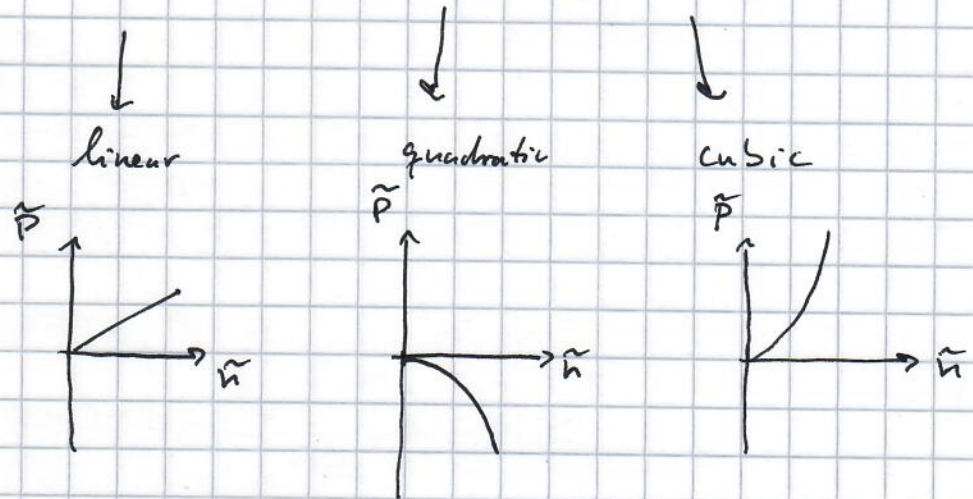 linear quadratic cubic
p̃ p̃ p̃
ñ ñ ñ